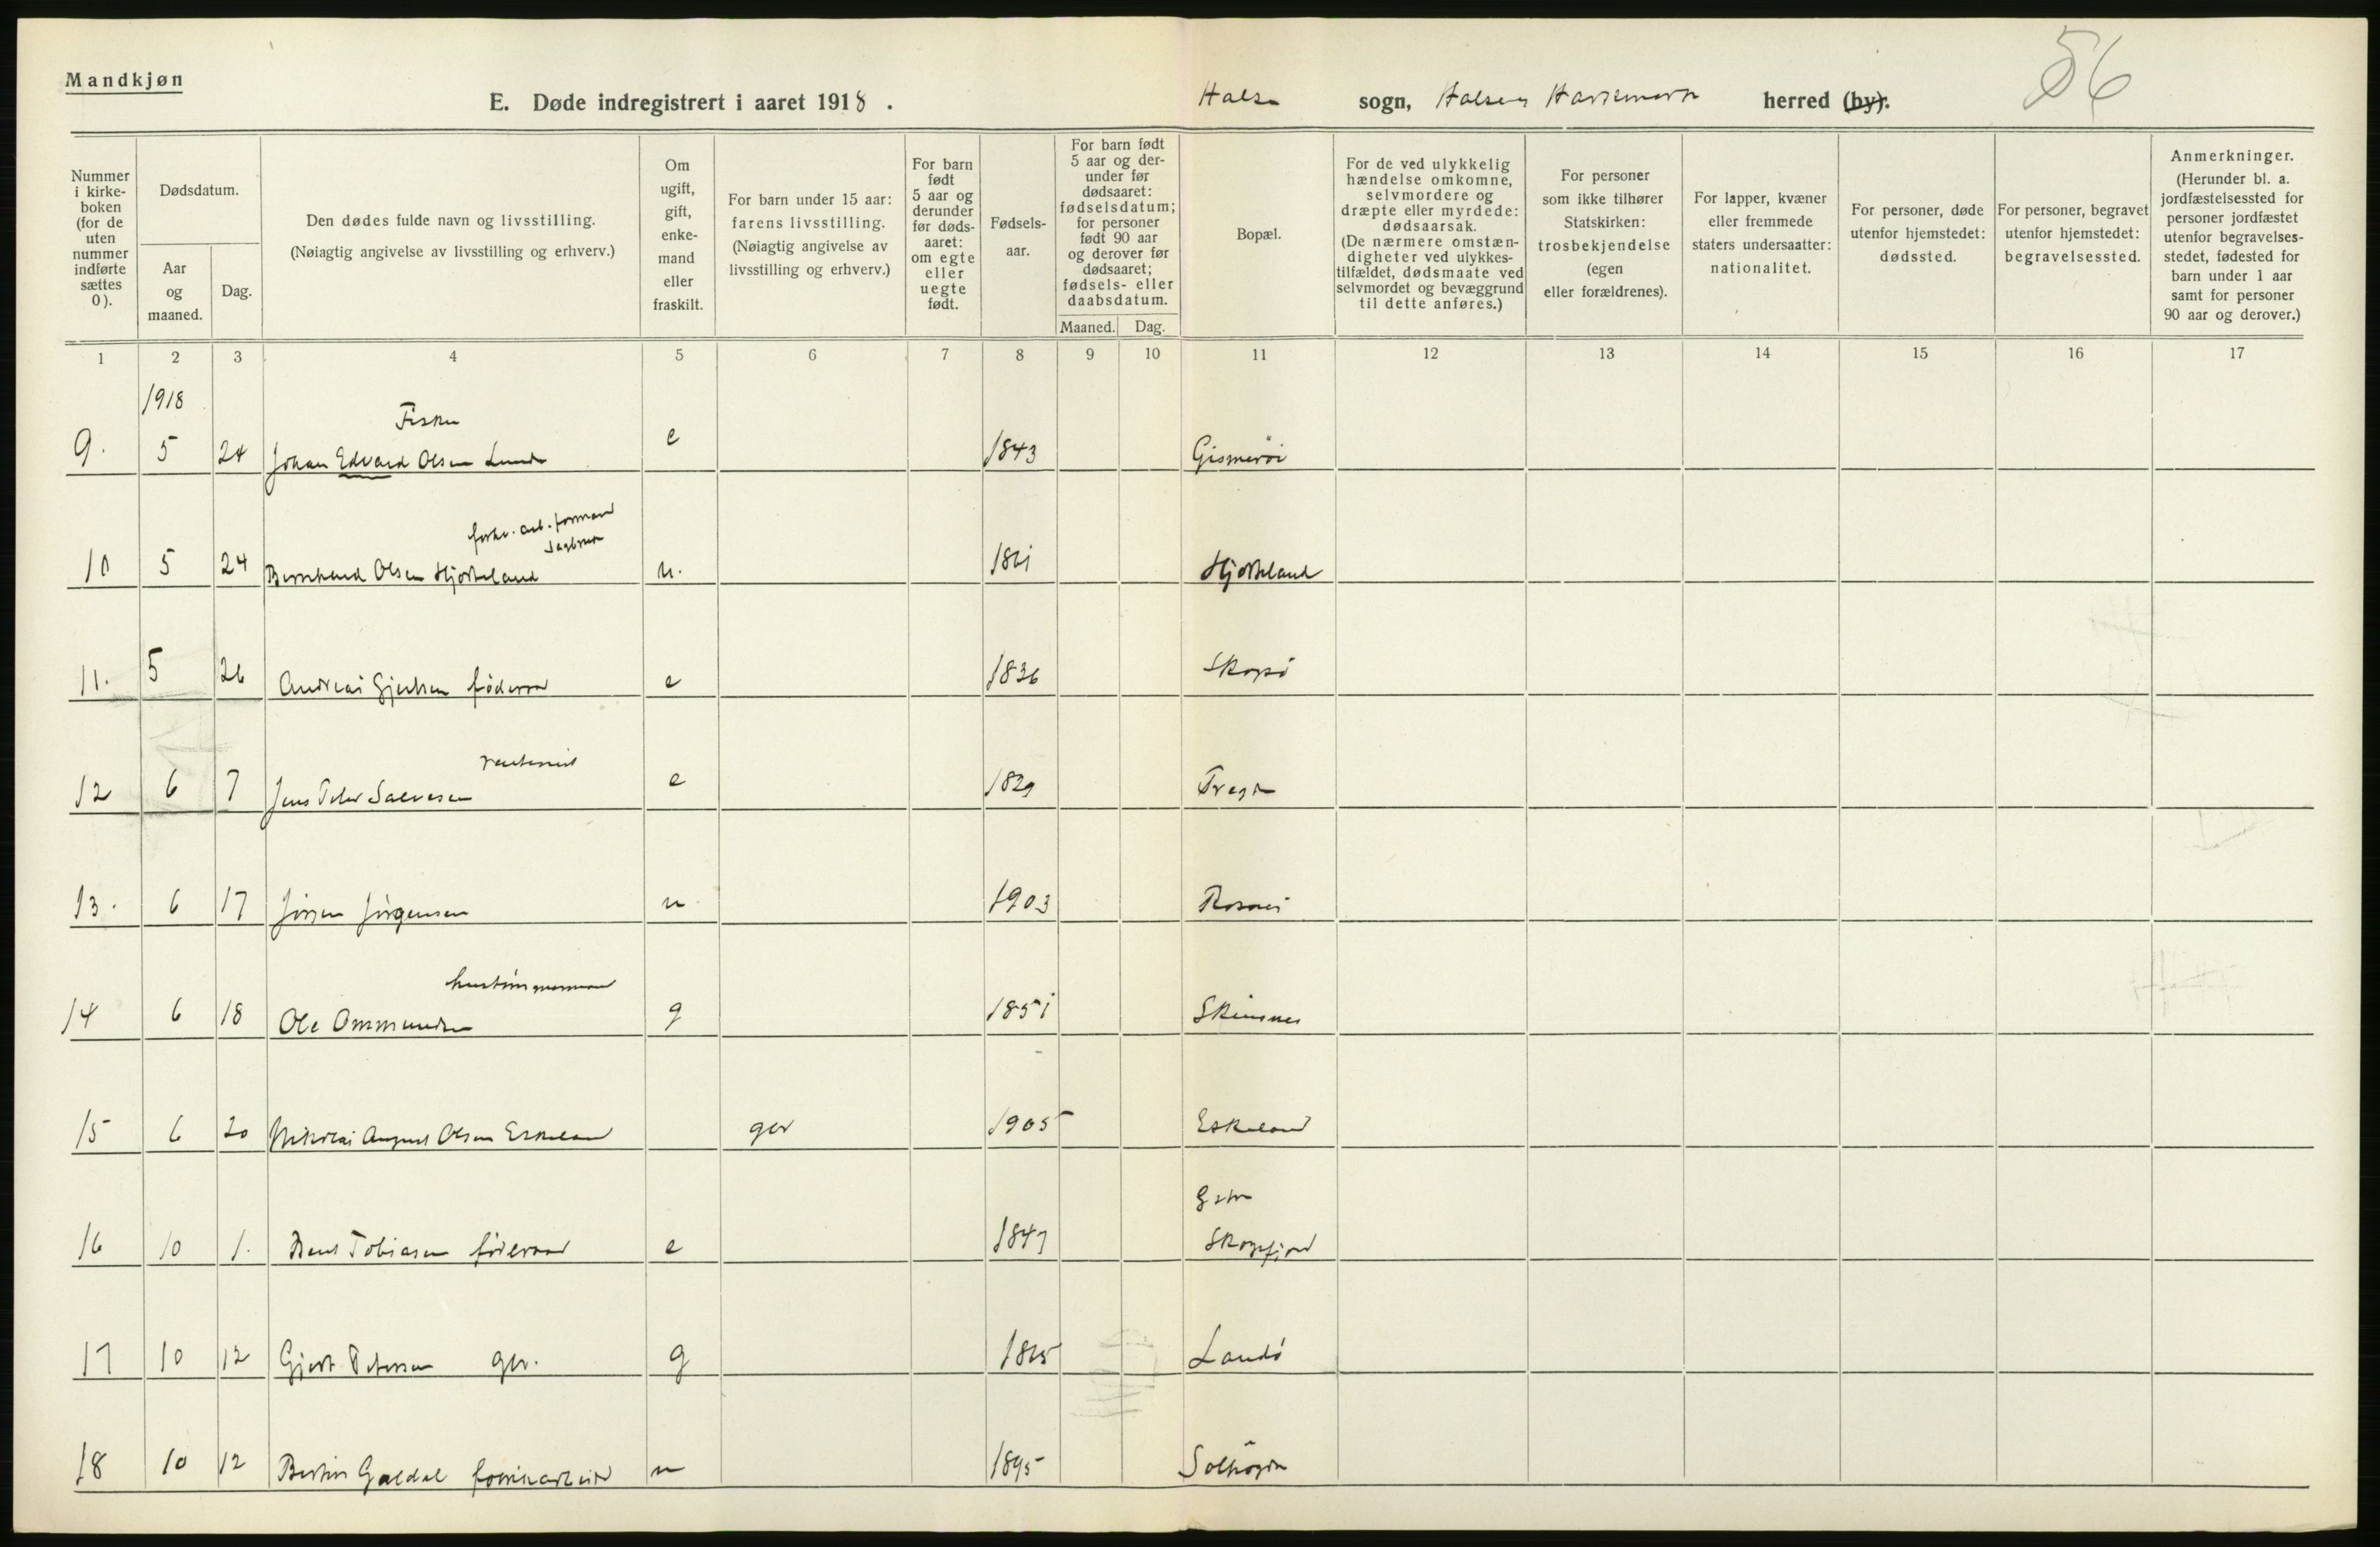 Mandkjøn
E. Døde indregistrert i aaret 1918.
Halse sogn, Halse og Harkmark herred (by).
56
Nummer i kirkeboken (for de uten nummer indførte sættes 0).
Dødsdatum.
Aar og maaned.
Dag.
Den dødes fulde navn og livsstilling.
(Nøiagtig angivelse av livsstilling og erhverv.)
Om ugift, gift, enkemand eller fraskilt.
For barn under 15 aar: farens livsstilling.
(Nøiagtig angivelse av livsstilling og erhverv.)
For barn født 5 aar og derunder før dødsaaret: om egte eller uegte født.
Fødselsaar.
For barn født 5 aar og derunder før dødsaaret: fødselsdatum; for personer født 90 aar og derover før dødsaaret; fødsels- eller daabsdatum.
Maaned. Dag.
Bopæl.
For de ved ulykkelig hændelse omkomne, selvmordere og dræpte eller myrdede: dødsaarsak.
(De nærmere omstændigheter ved ulykkestilfældet, dødsmaate ved selvmordet og bevæggrund til dette anføres.)
For personer som ikke tilhører Statskirken: trosbekjendelse (egen eller forældrenes).
For lapper, kvæner eller fremmede staters undersaatter: nationalitet.
For personer, døde utenfor hjemstedet: dødssted.
For personer, begravet utenfor hjemstedet: begravelsessted.
Anmerkninger.
(Herunder bl. a. jordfæstelsessted for personer jordfæstet utenfor begravelsesstedet, fødested for barn under 1 aar samt for personer 90 aar og derover.)
1 2 3 4 5 6 7 8 9 10 11 12 13 14 15 16 17
1918
Fisker
9. 5 24 Johan Edvard Olsen Lunde e 1843 Gismerøi
forhv. arb. formand
Sagbruk
10 5 24 Bernhard Olsen Hjorteland u. 1861 Hjorteland
11. 5 26 Andreas Gjertsen føderaad e 1836 Skogsø
rentenist
12 6 7 Jens Peder Salvesen e 1829 Tregde
13. 6 17 Jørgen Jørgensen u 1903
hustømmermand
14 6 18 Ole Ommundsen g 1851 Skinsnes
15 6 20 Nikolai August Olsen Eskeland gbr 1905 Eskeland
16 10 1. Tobiasen føderaad e 1847 Skogsfjord
17 10 12 Gjert Petersen gbr. g 1865 Landø
18 10 12 Galdal fabrikarbeider u 1895